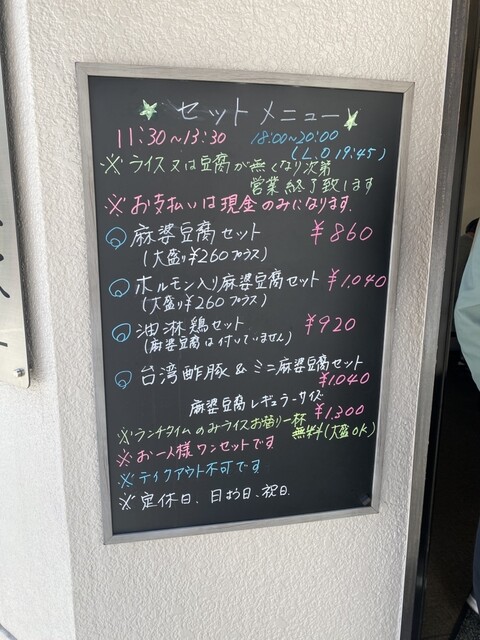 セットメニュー
11:30~13:30 18:00~20:00
(L.O 19:45)
※ライス又は豆腐が無くなり次第
営業終了致します
※お支払いは現金のみになります.
麻婆豆腐セット ¥860
(大盛り¥260プラス)
ホルモン入り麻婆豆腐セット ¥1.040
(大盛り¥260プラス)
油淋鶏セット ¥920
(麻婆豆腐は付いていません)
台湾酢豚&ミニ麻婆豆腐セット
¥1.040
麻婆豆腐レギュラーサイズ ¥1.300
※ランチタイムのみライスお替り一杯
無料(大盛OK)
※お一人様ワンセットです
※テイクアウト不可です
※定休日、日よう日、祝日.